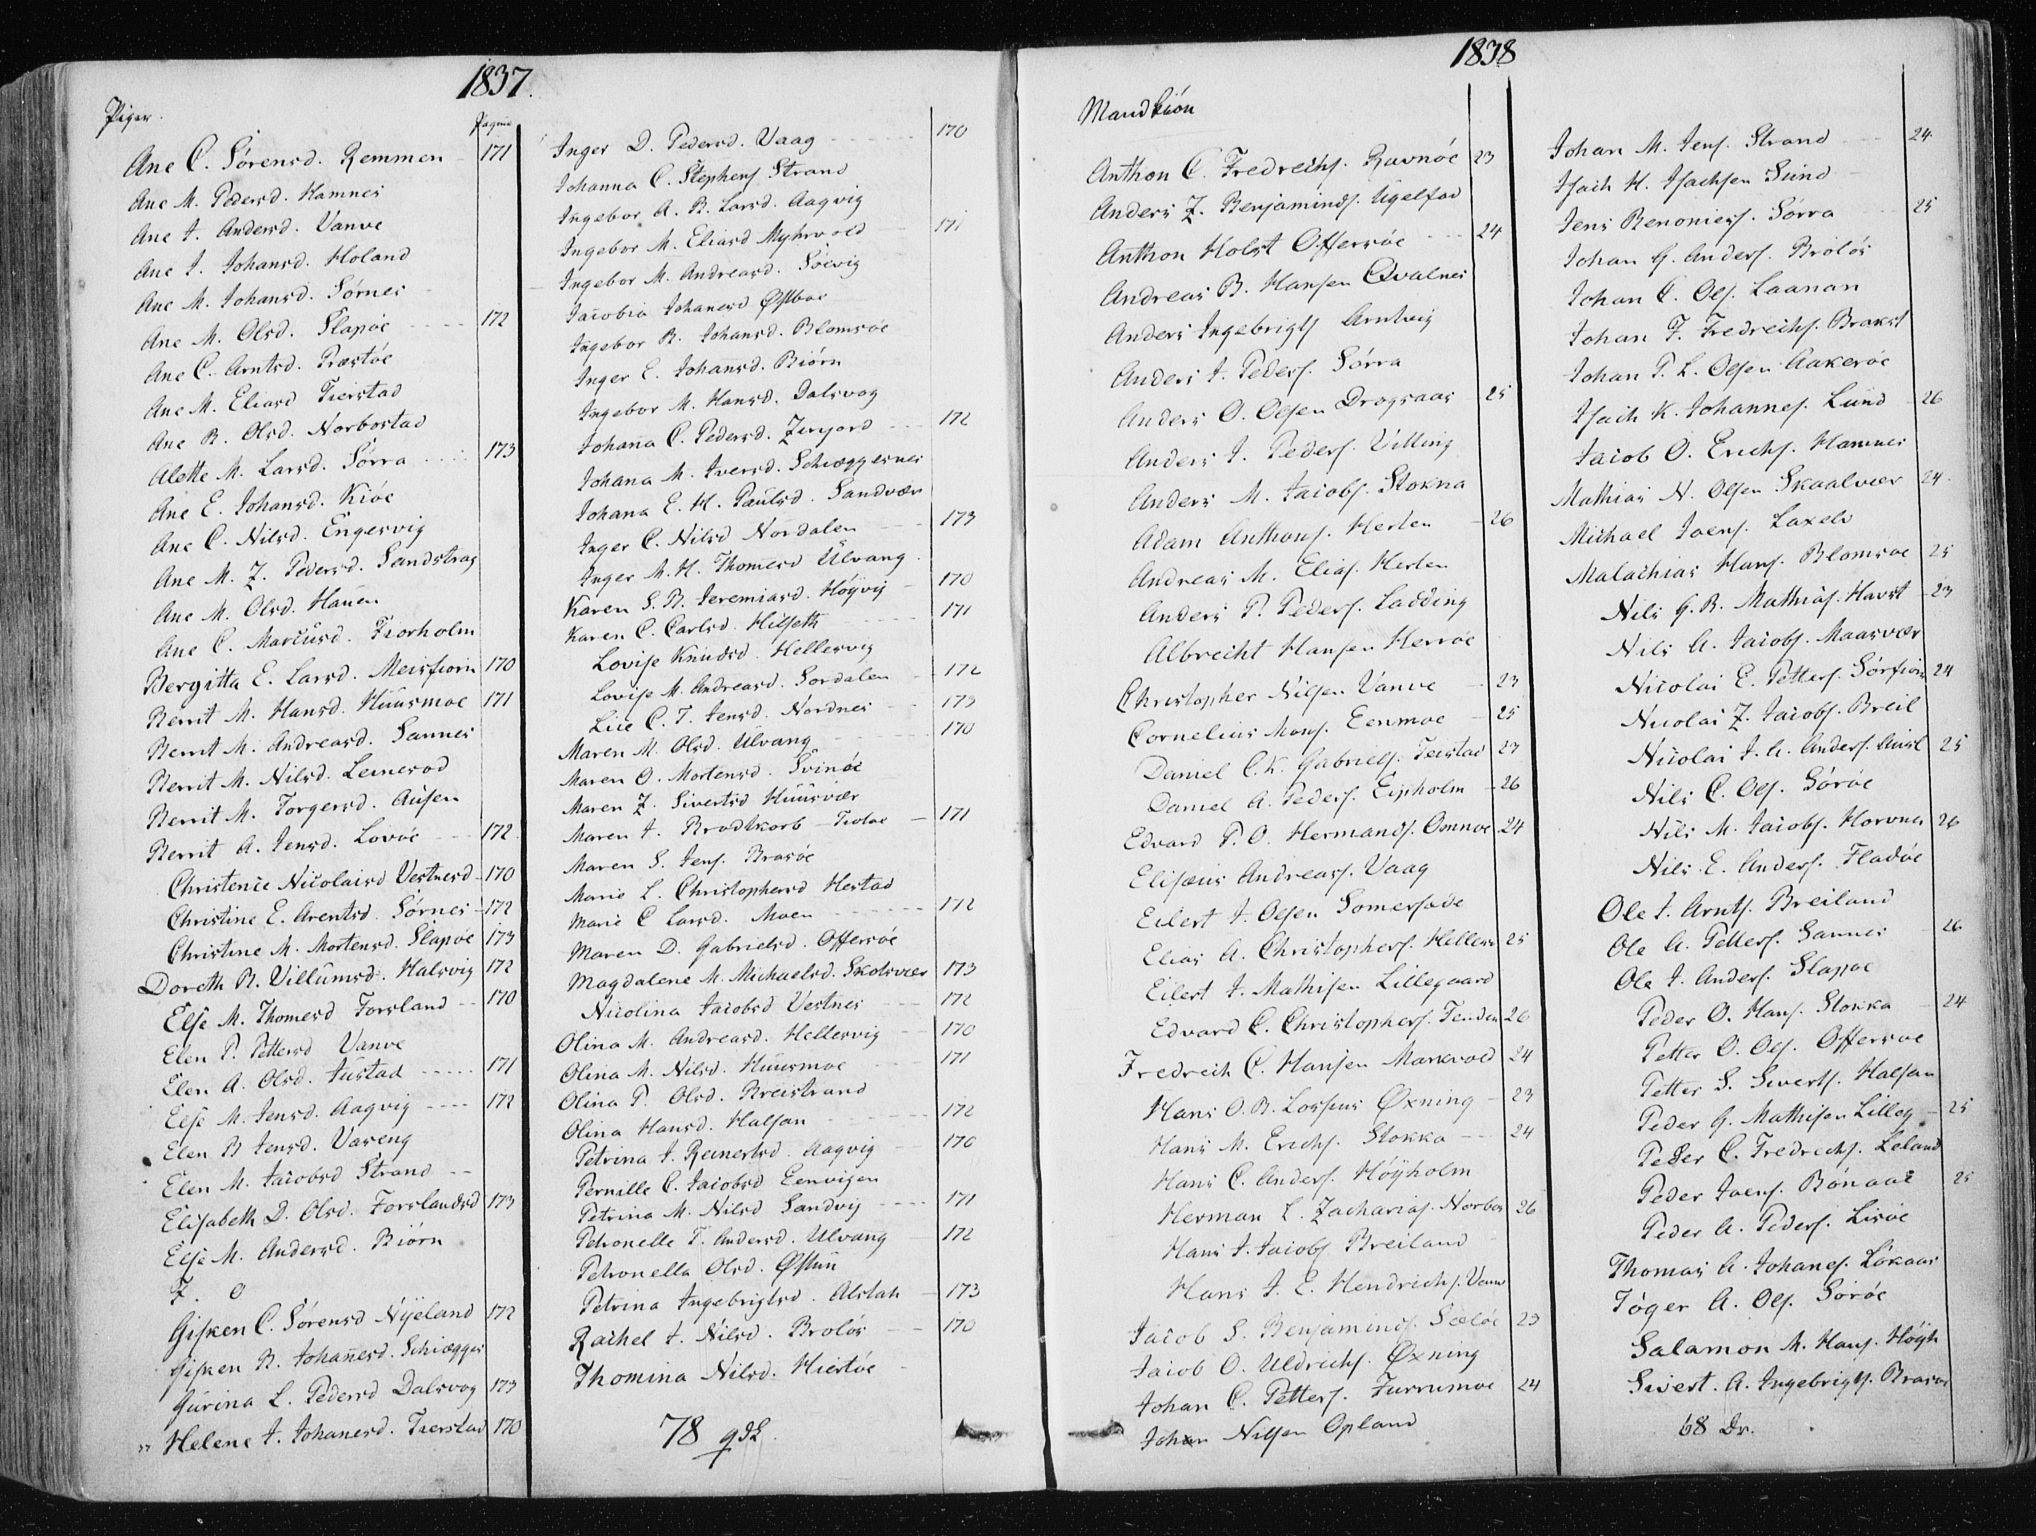 1837.
Piger.
Pagina
Ane C. Sørensd. Remmen 171
Ane M. Pedersd. Hamnes
Ane J. Andersd. Vanve
Ane J. Johansd. Holand
Ane M. Johansd. Sørnes
Ane M. Olsd. Slapøe 172
Ane C. Arntsd. Præstøe
Ane M. Eliasd Tierstad
Ane B. Olsd. Norbostad
Alette M. Larsd. Sørra 173
Ane E. Johansd. Kiøe
Ane C. Nilsd. Engesvig
Ane M. Z. Pedersd. Sandstrag
Ane M. Olsd. Hauen
Ane C. Marcusd. Fiorholm
Bergitta E. Larsd. Meisfiorn 170
Berrit M. Hansd. Huusmoe 171
Berrit M. Andreasd. Sannes
Berrit M. Nilsd. Leinesod
Berrit M. Torgersd. Ausen
Berrit A. Jensd. Lovøe 172
Christence Nicolaisd Vestnesd 170
Christine E. Arentsd. Sørnes 172
Christine M. Mortensd. Slapøe 173
Doreth R. Villumsd. Halsvig 172
Else M. Thomesd Forsland 170
Elen P. Pettersd Vanve
Elen A. Olsd. Tustad 171
Else M. Jensd. Aagvig 172
Elen B Jensd. Vareng
Elen M. Jacobsd Strand
Elisabeth D. Olsd. Forslandsd 173
Else M. Andersd. Biørn
F. O
Gisken C. Sørensd Nyeland 172
Gisken B. Johannesd. Schiægges
Gurina L. Pedersd Dalsvog 173
" Helene J. Johanesd. Tierstad 170
Inger D. Pedersd. Vaag 170
Johanna C. Stephens. Strand
Ingebor A. B. Larsd. Aagvig
Ingebor M. Eliasd Myhrvold 171
Ingebor M. Andreasd. Søevig
Jacobia Johanesd Østboe
Ingebor B. Johansd. Blomsøe
Inger E. Johansd. Biørn
Ingebor M. Hansd. Dalsvog
Johanna C. Pedersd. Zenjord 172
Johana M. Iversd. Schiæggesnes
Johana E. H. Paulsd. Sandvær
Inger C. Nilsd Nordalen 173
Inger M. H. Thomesd Ulvang
Karen S. B. Jeremiasd. Høyvig 170
Karen C. Carlsd. Hilseth 171
Lovise Knudsd. Hellesvig
Lovise M. Andreasd. Sordalen 172
Lise C. T. Jensd. Nordnes 173
Maren M. Olsd. Ulvang 170
Maren O. Mortensd. Svinøe
Maren Z. Sivertsd Huusvær
Maren J. Brodtkorb Tiotøe 171
Maren S. Jens. Brasøe
Marie L. Christophersd Hestad
Marie C Larsd. Moen 172
Maren D. Gabrielsd. Offersøe
Magdalene M. Michaelsd. Skotsvær 173
Nicolina Jacobsd Vestnes 172
Olina M. Andreasd. Hellesvig 170
Olina M. Nilsd. Huusmoe 171
Olina P. Olsd. Breistrand
Olina Hansd. Halsan 172
Petrina J. Reinertsd. Aagvig 170
Pernille C. Jacobsd Eenvigen
Petrina M. Nilsd Sandvig 171
Petronelle T. Andersd. Ulvang 172
Petronella Olsd. Østun
Petrina Ingebrigtsd. Alstah 173
Rachel J. Nilsd. Broløs 170
Thomina Nilsd. Hiertøe
78 qdk.
1838
Mandkiøn
Anthon C. Fredrechs. Ravnøe 23
Anders Z. Benjamins. Ugelfod
Anthon Holst Offersøe 24
Andreas B. Hansen Qvalnes
Anders Ingebrigts Arntvig
Anders J. Peders. Sørra
Anders O. Olsen Drogsaas 25
Anders J. Peders. Villing
Anders M. Jacobs. Stokna
Adam Anthons. Herlen 26
Andreas M. Elias. Herlen
Anders P. Peders. Ladding
Albrecht Hansen Herrøe
Christopher Nilsen Vanve 23
Cornelius Mons. Eenmoe 25
Daniel C. K. Gabriels. Teistad 23
Daniel A. Peders. Eisholm 26
Edvard P. O. Hermands. Omnøe 24
Elisæus Andreass. Vaag
Eilert J. Olsen Somersøde
Elias A. Christophers. Hellesv 25
Eilert J. Mathisen Lillegaard
Edvard C. Christophers. Tenden 26
Fredrech C. Hansen Markvold 24
Hans O. B. Lossius Øxning 23
Hans M. Erichs. Stokka 24
Hans C. Anders. Høyholm
Herman L. Zacharias. Norbos 26
Hans J. Jacobs Breiland
Hans J. E. Hendrichs. Vanv
Jacob S. Benjamins. Sæløe 23
Jacob O. Uldrichs. Øxning
Johan C. Petters. Furrumoe 24
Johan Nilsen Opland
Johan M. Jens. Strand 24
Isach H. Isachsen Sund
Jens Benonies. Sørra 25
Johan G. Anders. Broløs
Johan C. Ols. Laanan
Johan F. Fredrechs. Brakst
Johan P. L. Olsen Aakerøe
Isach K. Johannes. Lund 26
Jacob O. Erichs. Hamnes
Mathias N. Olsen Skaalvær 24
Michael Joens. Laxelv
Malachias Hans. Blomsøe 25
Nils G. B. Mathias. Havst 23
Nils A. Jacobs. Maasvær
Nicolai E. Petters. Sørfiorn 24
Nicolai Z. Jacobs. Breil
Nicolai J. A. Anders. Aust 25
Nils C. Ols. Sørøe
Nils M. Jacobs. Horvnes 26
Nils E. Anders. Fladøe
Ole J. Arnts. Breiland
Ole A. Petters. Sannes 26
Ole J. Anders. Slapøe
Peder O. Hans. Stokka 24
Petter O. Ols. Offersøe
Petter S. Siverts. Halsan
Peder G. Mathisen Lilleg 25
Peder C. Fredrechs. Leland
Peder Joens. Bønaae 25
Peder A. Peders. Lisøe
Thomas A. Johanes. Løkaas
Tøger A. Ols. Sørøe
Salamon M. Hans. Høyh
Sivert. A. Ingebrigts. Brasøe
68 Dr.